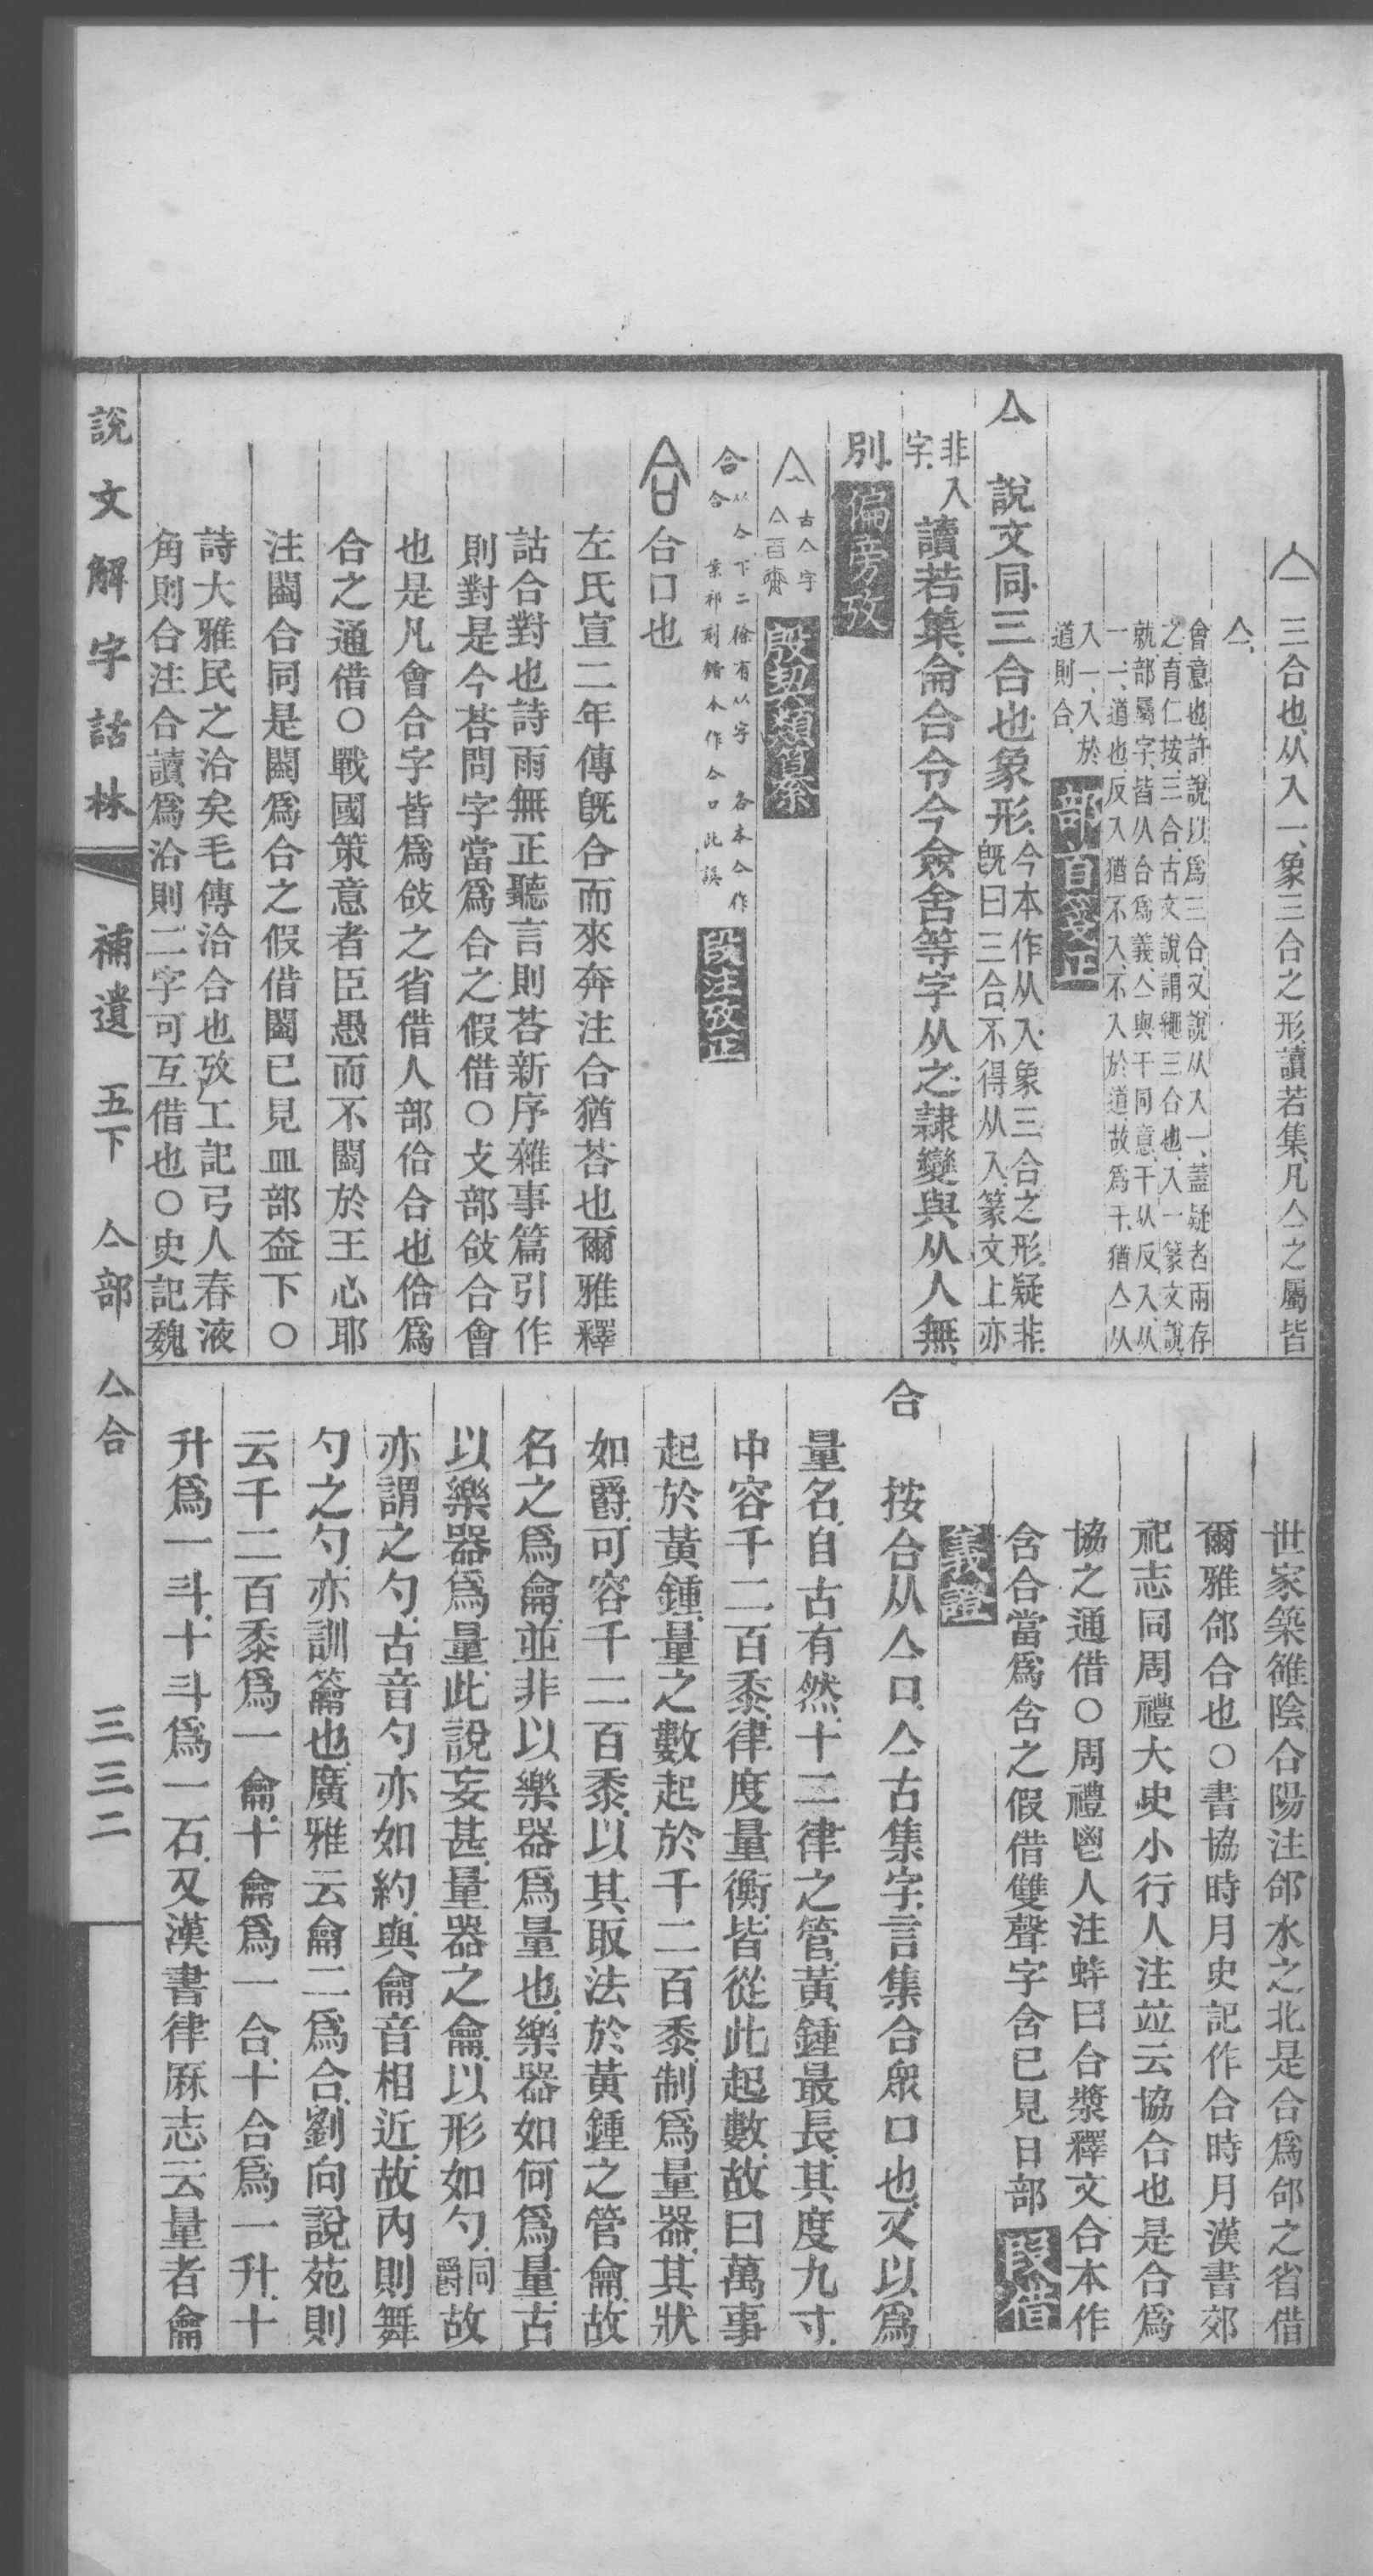 亼 三合也从入一象三合之形讀若集凡亼之屬皆
亼
會意也許說以爲三合又說从入一蓋疑者兩存
之育仁按三合古文說謂禮三合也入一篆文說
就部屬字皆从合爲義亼與干同意干从反入从
一一道也反入猶不入不入於道故爲干猶亼从
入一入於
道則合 部首受正
亼 說文同三合也象形今本作从入象三合之形疑非
既曰三合不得从入篆文上亦
非
字 入讀若集侖合令今僉舍等字从之隷變與从人無
別 偏旁攷
亼 古亼字
亼百齋 殷契類纂
合 以亼下二徐有以字 各本合作
合 葉祁刻鍇本作合口此誤 段注攷正
合 合口也
左氏宣二年傳旣合而來奔注合猶荅也爾雅釋
詁合對也詩雨無正聽言則荅新序雜事篇引作
則對是今荅問字當爲合之假借○攴部敆合會
也是凡會合字皆爲敆之省借人部佮合也佮爲
合之通借○戰國策意者臣愚而不闔於王心耶
注闔合同是闔爲合之假借闔已見皿部盇下○
詩大雅民之洽矣毛傳洽合也攷工記弓人春液
角則合注合讀爲洽則二字可互借也○史記魏
世家築雒陰合陽注郃水之北是合爲郃之省借
爾雅郃合也○書協時月史記作合時月漢書郊
祀志同周禮大史小行人注竝云協合也是合爲
協之通借○周禮鬯人注蜯曰合漿釋文合本作
含合當爲含之假借雙聲字含已見日部 叚借
義證
合 按合从亼口亼古集字言集合衆口也又以爲
量名自古有然十二律之管黃鍾最長其度九寸
中容千二百黍律度量衡皆從此起數故曰萬事
起於黃鍾量之數起於千二百黍制爲量器其狀
如爵可容千二百黍以其取法於黃鍾之管龠故
名之爲龠並非以樂器爲量也樂器如何爲量古
以樂器爲量此說妄甚量器之龠以形如勺同爵故
亦謂之勺古音勺亦如約與龠音相近故內則舞
勺之勺亦訓籥也廣雅云龠二爲合劉向說苑則
云千二百黍爲一龠十龠爲一合十合爲一升十
升爲一斗十斗爲一石又漢書律厤志云量者龠
說文解字詁林 補遺 五下 亼部 亼合 三三二